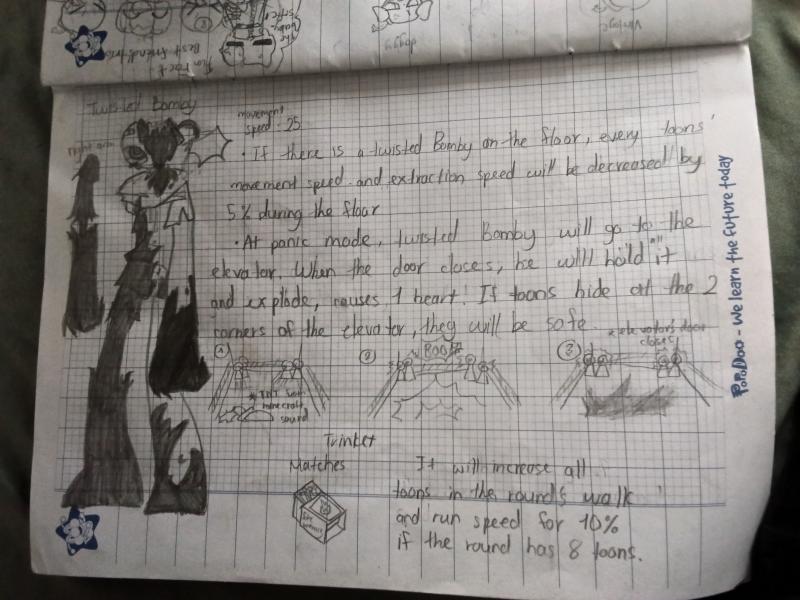 Fun Fact:
Best friend trio
The
baby
doggy
Vintage
Twisted Bomby
right arm
movement
speed: 25
• If there is a twisted Bomby on the floor, every toons'
movement speed and extraction speed will be decreased by
5% during the floor
• At panic mode, twisted Bomby will go to the
elevator. When the door closes, he will hold it
and explode, causes 1 heart. If toons hide at the 2
corners of the elevator, they will be safe.
1
* TNT from
minecraft
sound
2
BOOM
3
* elevators door
closes
Trinket
Matches
It will increase all
toons in the round's walk
and run speed for 10%
if the round has 8 toons.
POPODOO - We learn the future today